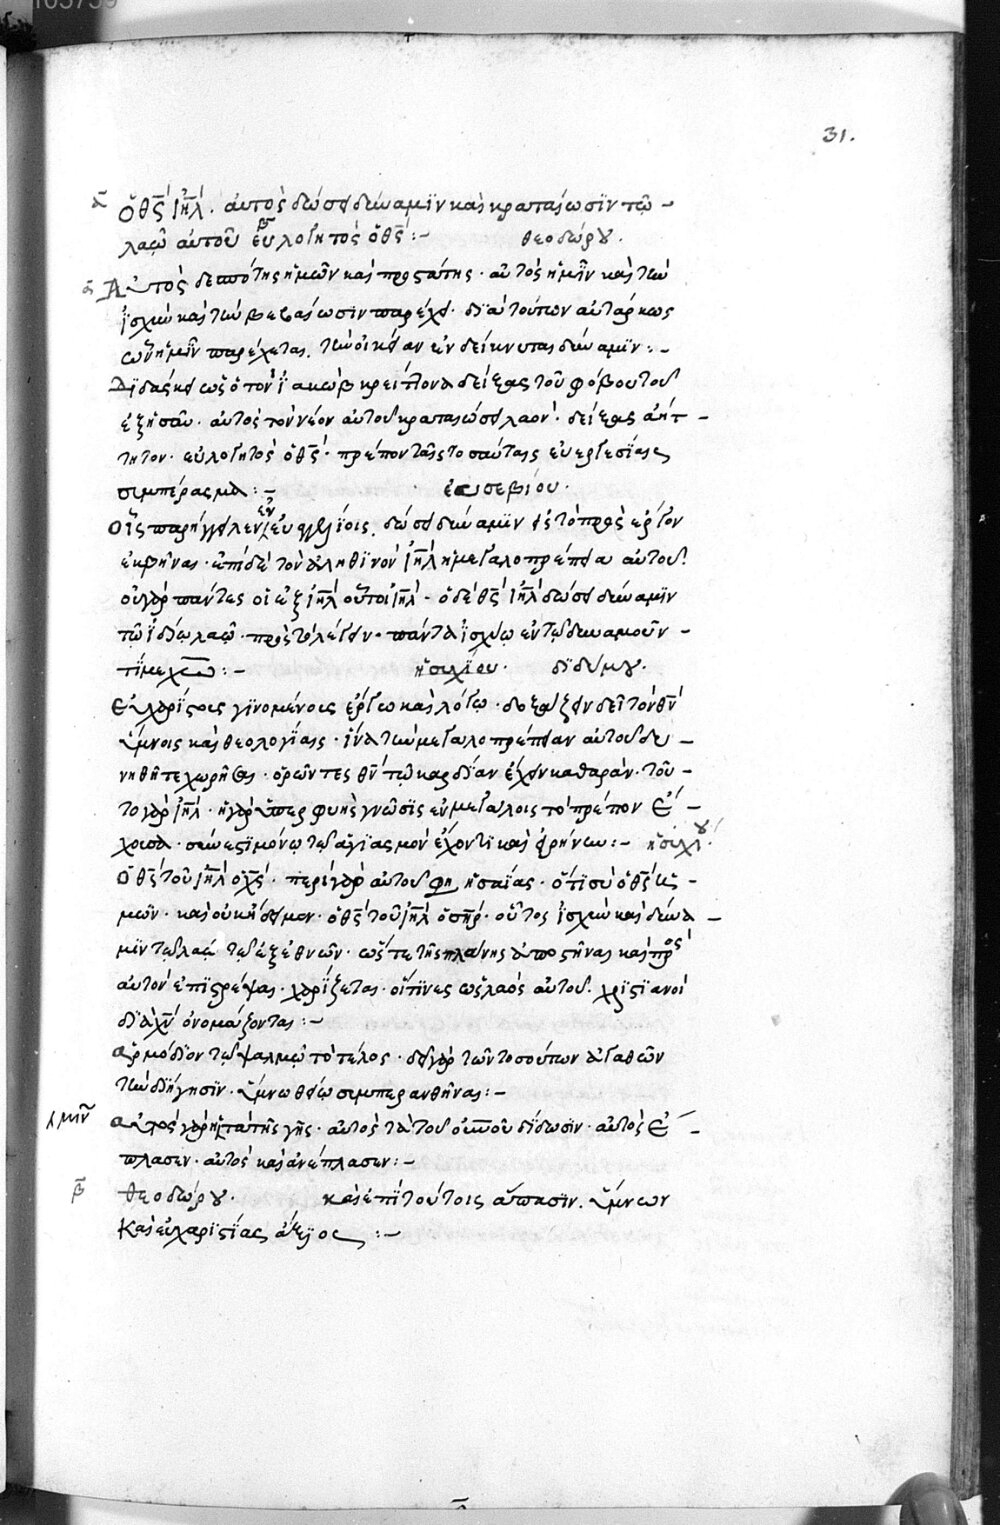 31.
α ὁ θς ιηλ. αὐτὸς δώσει δύναμιν καὶ κραταίωσιν τῷ -
λαῷ αὐτοῦ β εὐλογητὸς ὁ θς :- θεοδώρου.
α Αὐτὸς δεσπότης ἡμῶν καὶ προστάτης · αὐτὸς ἡμῖν καὶ τὴν
ἰσχὺν καὶ τὴν βεβαίωσιν παρέχει · διὰ τούτων αὐτάρκως
τὴν οἰκείαν ἐνδείκνυται δύναμιν :-
τὸν ἰακὼβ κρείττονα δείξας τοῦ φόβου τοῦ
ἐξ ησαῦ · αὐτὸς τὸν νέον αὐτοῦ κραταιώσει λαὸν · δείξας ἀήτ -
τητον · εὐλογητὸς ὁ θς · πρέπον ταῖς τοσαύταις εὐεργεσίαις
συμπέρασμα :- εὐσεβίου ·
Οἷς παρήγγειλεν ἐν εὐαγγελίοις. δώσει δύναμιν εἰς τὸ πρὸς ἔργον
ἐκβῆναι · ἐπὶ δὲ τὸν ἀληθινὸν ιηλ ἡ μεγαλοπρέπεια αὐτοῦ.
οὐ γὰρ πάντες οἱ ἐξ ιηλ οὗτοι ιηλ · ὁ δὲ θς ιηλ δώσει δύναμιν
τῷ ἰδίῳ λαῷ · πρὸς τὸ λέγειν · πάντα ἰσχύω ἐν τῷ δυναμοῦν -
τί με χω :- ἡσυχίου · διδύμου.
γινομένοις ἔργω καὶ λόγῳ · δοξάζειν δεῖ τὸν θν
ὕμνοις καὶ θεολογίαις · ἵνα τὴν μεγαλοπρέπειαν αὐτοῦ δυ -
νηθῆτε χωρῆσαι · ὁρῶντες θν τῷ καρδίαν ἔχειν καθαράν · τοῦ -
το γὰρ ιηλ · ἡ γὰρ ὑπερφυὴς γνῶσις ἐν μεγάλοις τὸ πρέπον ἔ -
χουσα · σύνεστι μόνῳ τῷ ἁγιασμὸν ἔχοντι καὶ εἰρήνην :- ἡσυχίου.
ὁ θς τοῦ ιηλ ὁ χς · περὶ γὰρ αὐτοῦ φη ἡσαΐας · ὅτι σὺ ὁ θς ἡ -
μῶν · καὶ οὐκ ᾔδειμεν · ὁ θς τοῦ ιηλ ὁ σηρ · οὗτος ἰσχὺν καὶ δύνα -
μιν τῷ λαῷ τῷ ἐξ ἐθνῶν · ὥστε τῆς πλάνης ἀποστῆναι καὶ πρὸς
αὐτὸν ἐπιστρέψαι · χαρίζεται · οἵτινες ὡς λαὸς αὐτοῦ χριστιανοὶ
διὰ χν ὀνομάζονται :-
ἁρμόδιον τῷ ψαλμῷ τὸ τέλος · δεῖ γὰρ τῶν τοσούτων ἀγαθῶν
τὴν διήγησιν · ὕμνω θείω συμπερανθῆναι :-
αὐτὸς γὰρ τὰ τῆς γῆς · αὐτὸς τὰ τοῦ οὐνοῦ δίδωσιν · αὐτὸς ἔ -
πλασεν · αὐτὸς καὶ ἀνέπλασεν :-
β θεοδώρου. καὶ ἐπὶ τούτοις ἅπασιν. ὕμνων
Καὶ εὐχαριστίας ἄξιος :-